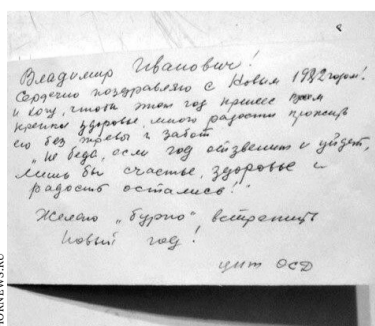 Владимир Иванович!
Сердечно поздравляю с Новым 1982 годом!
и хочу, чтобы этот год принес Вам
крепкое здоровье, много радости прожить
его без тревог и забот
„Не беда, если год отзвенит и уйдет,
лишь бы счастье, здоровье и
радость остались!"
Желаю „бурно" встретить
Новый год!
ЦИТ ОСД
IORNEWS.RU